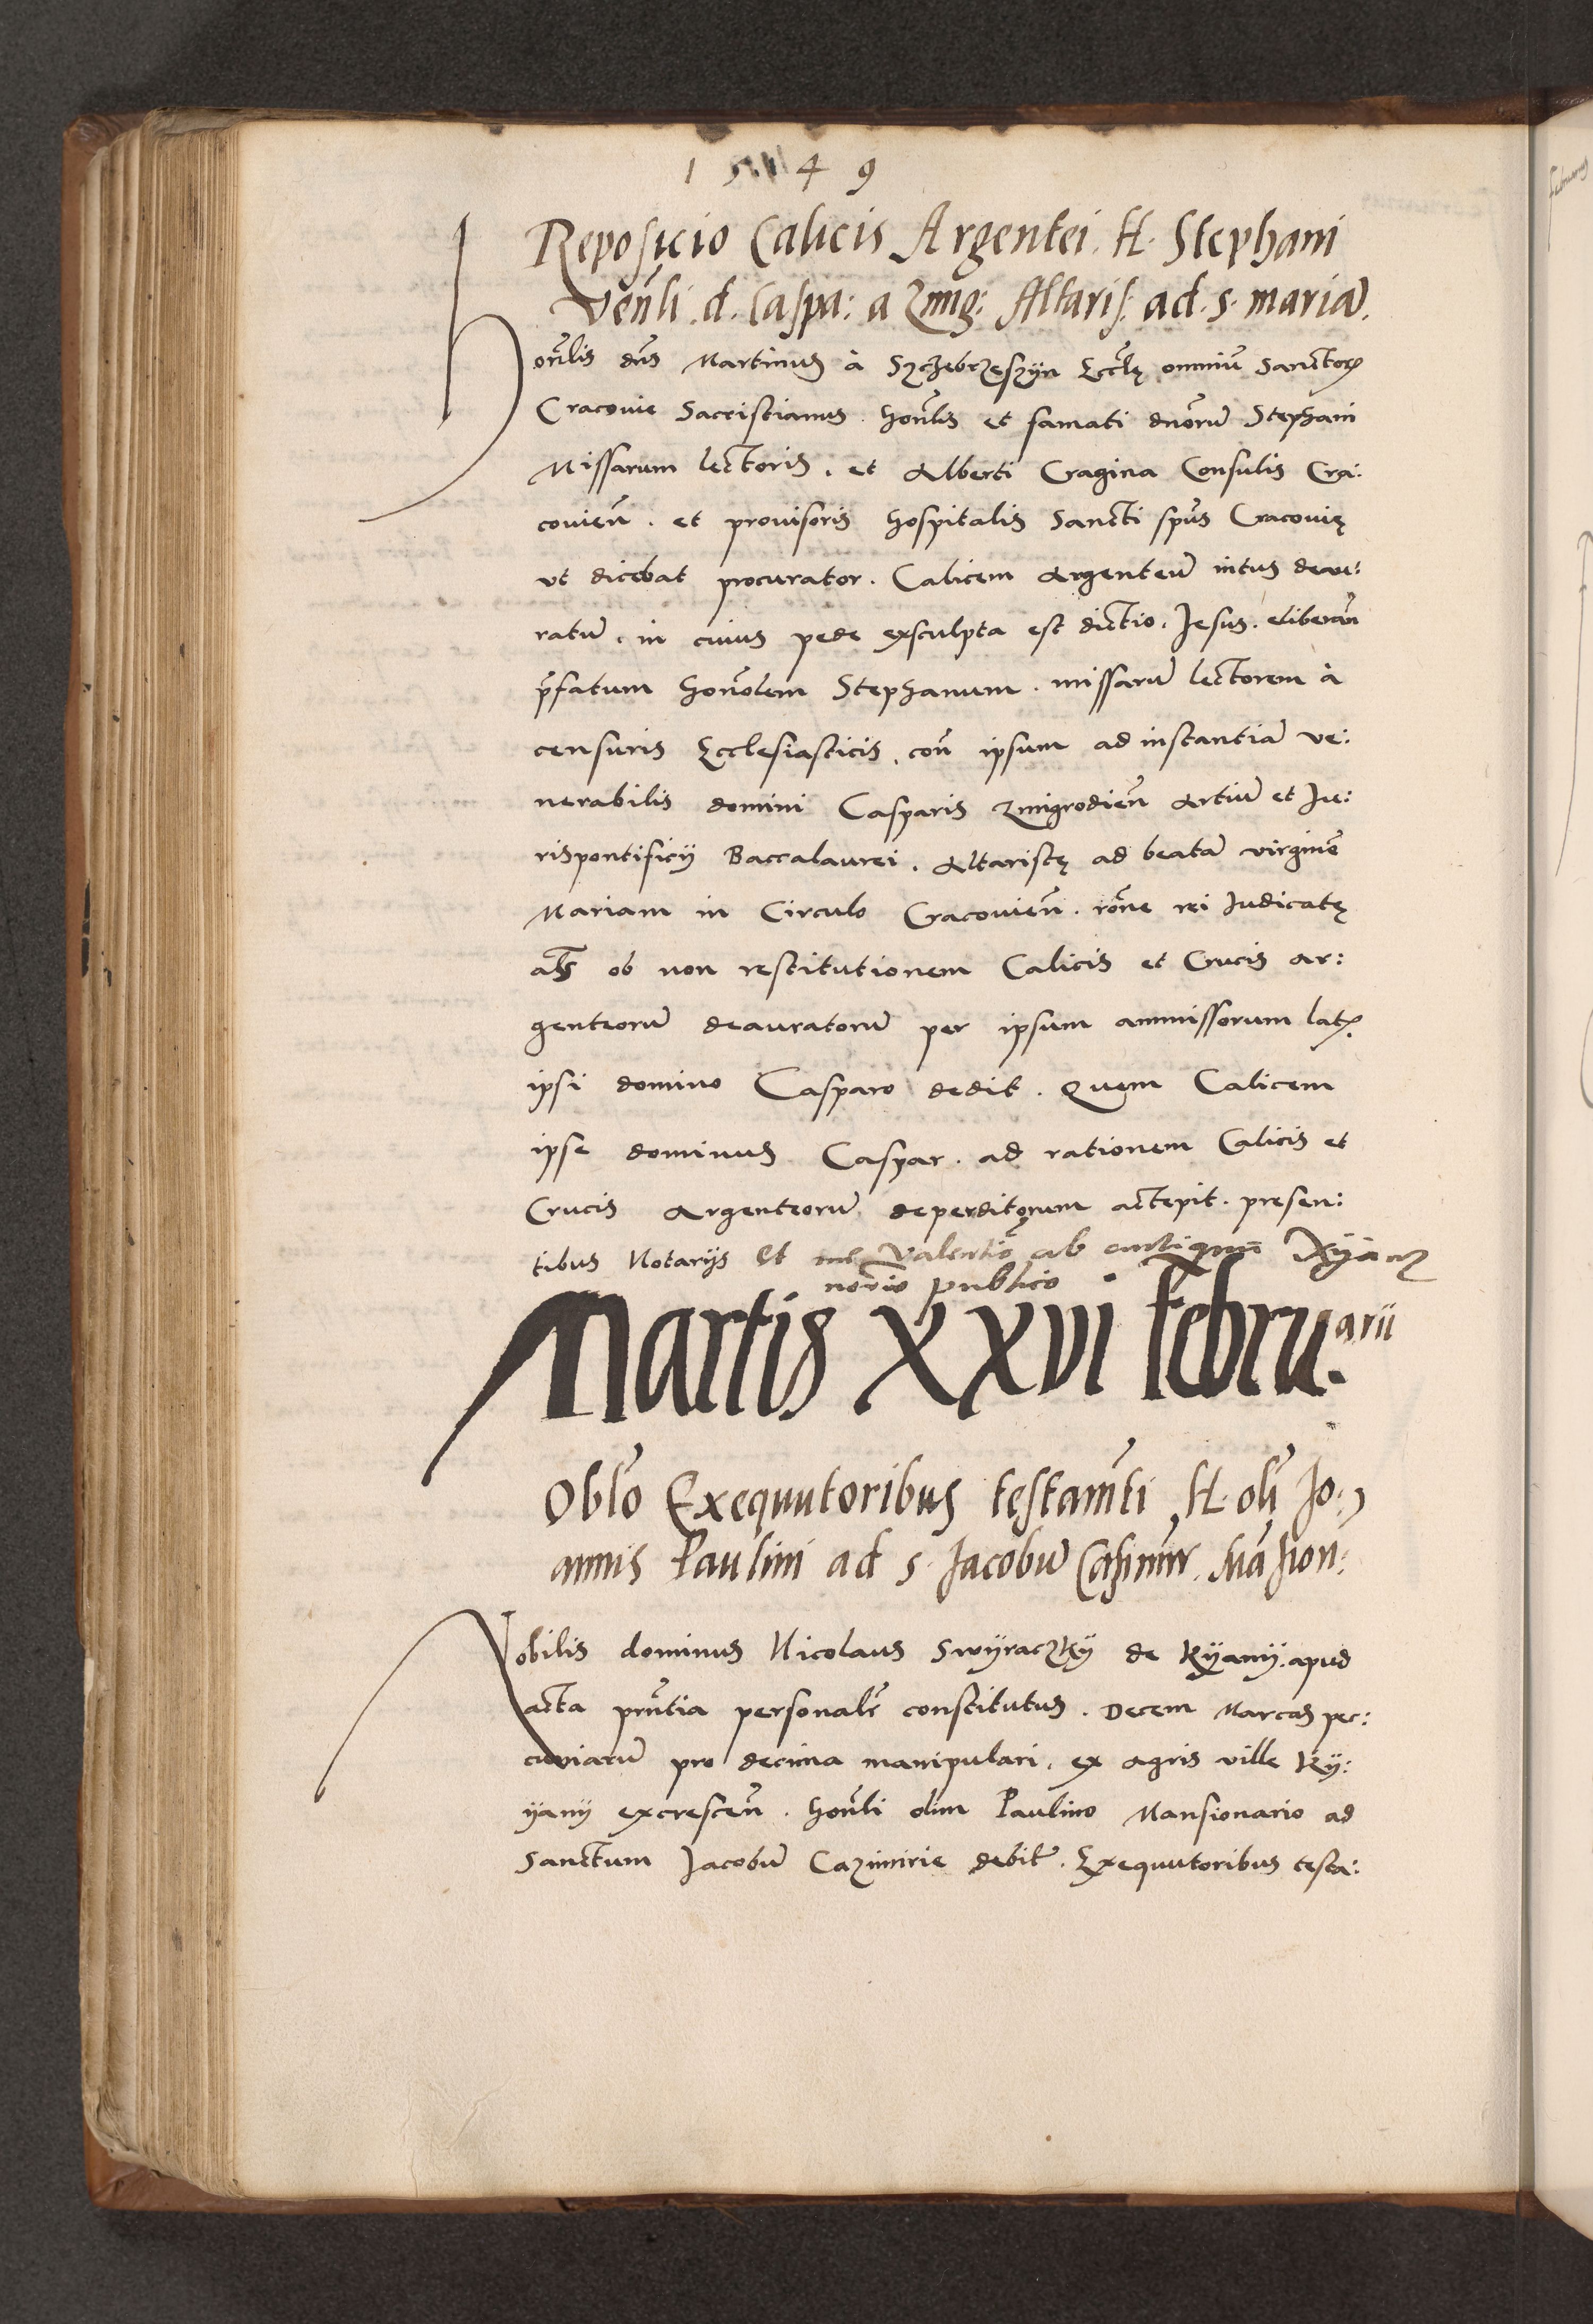 1549
Reposicio Calicis Argentei. H. Stephani
Venli. d. Caspa: a Zmig: Altaris. ad. s. maria.
Honrlis dns Martinus à Szczebrzeszyn Eccle omniu Sanctor
Cracovie Sacristianus. Honrlis et famati dnoru Stephani
Missarum lectoris. et Alberti Cragina Consulis Cra:
covien. et provisoris hospitalis Sancti spus Cracovię
ut dicebat procurator. Calicem Argenteu intus deau:
ratu. in cuius pede exsculpta est dictio. Jesus. eliberan
pfatum honorlem Stephanum. missaru lectorem à
censuris Ecclesiasticis. con ipsum ad instantia ve:
nerabilis domini Casparis Zmigrodien Artiu et Ju:
rispontificij Baccalaurei. Altaristę ad beata virgine
Mariam in Circulo Cracovien. rone rei Judicatę
als ob non restitutionem Calicis et Crucis ar:
genteoru deauratoru per ipsum ammissorum lat.
ipsi domino Casparo dedit. Quem Calicem
ipse dominus Caspar. ad rationem Calicis et
Crucis Argenteoru deperditorum accepit. presen:
tibus Notarijs Et me Valentio ab antiqua
norio publico
Martis XXVI Februarii
Oblo Exequutoribus testamti H. oli Jo:
annis Paulini ad s. Jacobu Casimir. Mansion:
Nobilis dominus Nicolaus Swyraczky de Kyanij. apud
acta pntia personalr constitutus. Decem Marcas pec:
cuniaru pro decima manipulari. ex agris ville Ky:
yanij excrescen. honrli olim Paulino Mansionario ad
Sanctum Jacobu Cazimirie debit. Exequutoribus testa: